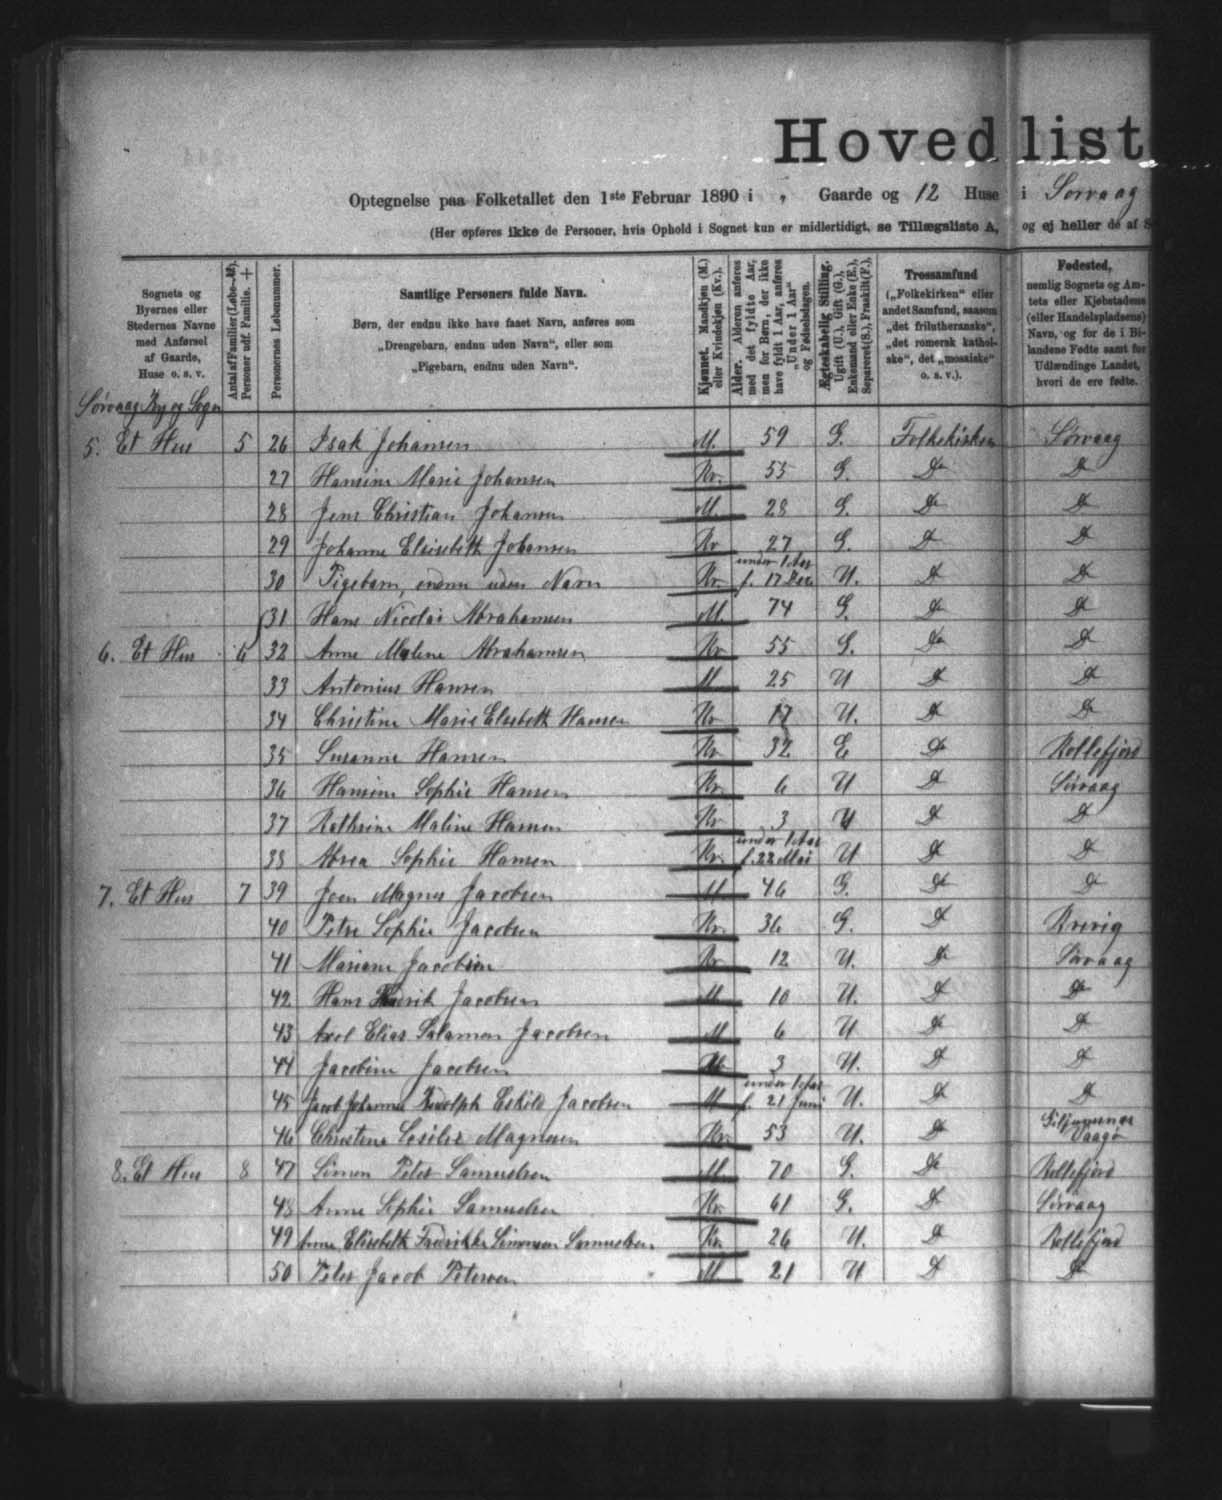 Hovedlist
Optegnelse paa Folketallet den 1ste Februar 1890 i „ Gaarde og 12 Huse i Sørvaag
(Her opføres ikke de Personer, hvis Ophold i Sognet kun er midlertidigt, se Tillægsliste A, og ej heller de af S
Sognets og Byernes eller Stedernes Navne med Anførsel af Gaarde, Huse o. s. v.
Antal af Familier (Løbe-№). Personer udf. Familie. +
Personernes Løbenummer.
Samtlige Personers fulde Navn.
Børn, der endnu ikke have faaet Navn, anføres som
„Drengebarn, endnu uden Navn", eller som
„Pigebarn, endnu uden Navn".
Kjønnet. Mandkjøn (M.) eller Kvindekjøn (Kv.).
Alder. Alderen anføres med det fyldte Aar, men for Børn, der ikke have fyldt 1 Aar, anføres „Under 1 Aar" og Fødselsdagen.
Ægteskabelig Stilling. Ugift (U.), Gift (G.), Enkemand eller Enke (E.), Separeret (S.), Fraskilt (F.),
Trossamfund („Folkekirken" eller andet Samfund, saasom „det frilutheranske", „det romersk katholske", det „mosaiske" o. s. v.).
Fødested, nemlig Sognets og Amtets eller Kjøbstadens (eller Handelspladsens) Navn, og for de i Bilandene Fødte samt for Udlændinge Landet, hvori de ere fødte.
Sørvaag By og Sogn
5. Et Hus 5 26 Isak Johansen M. 59 G. Folkekirken Sørvaag
27 Hansine Marie Johansen Kv. 55 G. Do Do
28 Jens Christian Johansen M. 28 G. Do Do
29 Johanne Elsisebeth Johansen Kv 27 G. Do Do
30 Pigebarn, endnu uden Navn Kv. under 1 Aar f. 17 Dec U. Do Do
31 Hans Nicolai Abrahamsen M. 74 G. Do Do
6. Et Hus 6 32 Anne Malene Abrahamsen Kv 55 G. Do Do
33 Antonius Hansen M 25 U Do Do
34 Christine Marie Elsebeth Hansen Kv 17 U. Do Do
35 Susanne Hansen Kv 32 E Do Kollefjord
36 Hansine Sophie Hansen Kv. 6 U Do Sørvaag
37 Kathrine Maline Hansen Kv 3 U Do Do
38 Sophie Hansen Kv. under 1 Aar f. 22 Mai U Do Do
7. Et Hus 7 39 Joen Magnus Jacobsen M. 46 G. Do Do
40 Petre Sophie Jacobsen Kv. 36 G. Do Kvivig
41 Mariane Jacobsen Kv 12 U. Do Sørvaag
42 Hans Henrik Jacobsen M 10 U. Do Do
43 Axel Elias Salamon Jacobsen M 6 U Do Do
44 Jacobine Jacobsen Kv. 3 U. Do Do
45 Jacob Johannes Rudolph Eskild Jacobsen M under 1 Aar f. 21 Juni U. Do Do
46 Christine Magnusen Kv. 53 U. Do Vaagø
8. Et Hus 8 47 Simon Peter Samuelsen M. 70 G. Do Kollefjord
48 Anne Sophie Samuelsen Kv. 61 G. Do Sørvaag
49 Anne Elisebeth Fredrikke Simonsen Samuelsen Kv. 26 U. Do Kollefjord
50 Peter Jacob Petersen M 21 U Do Do